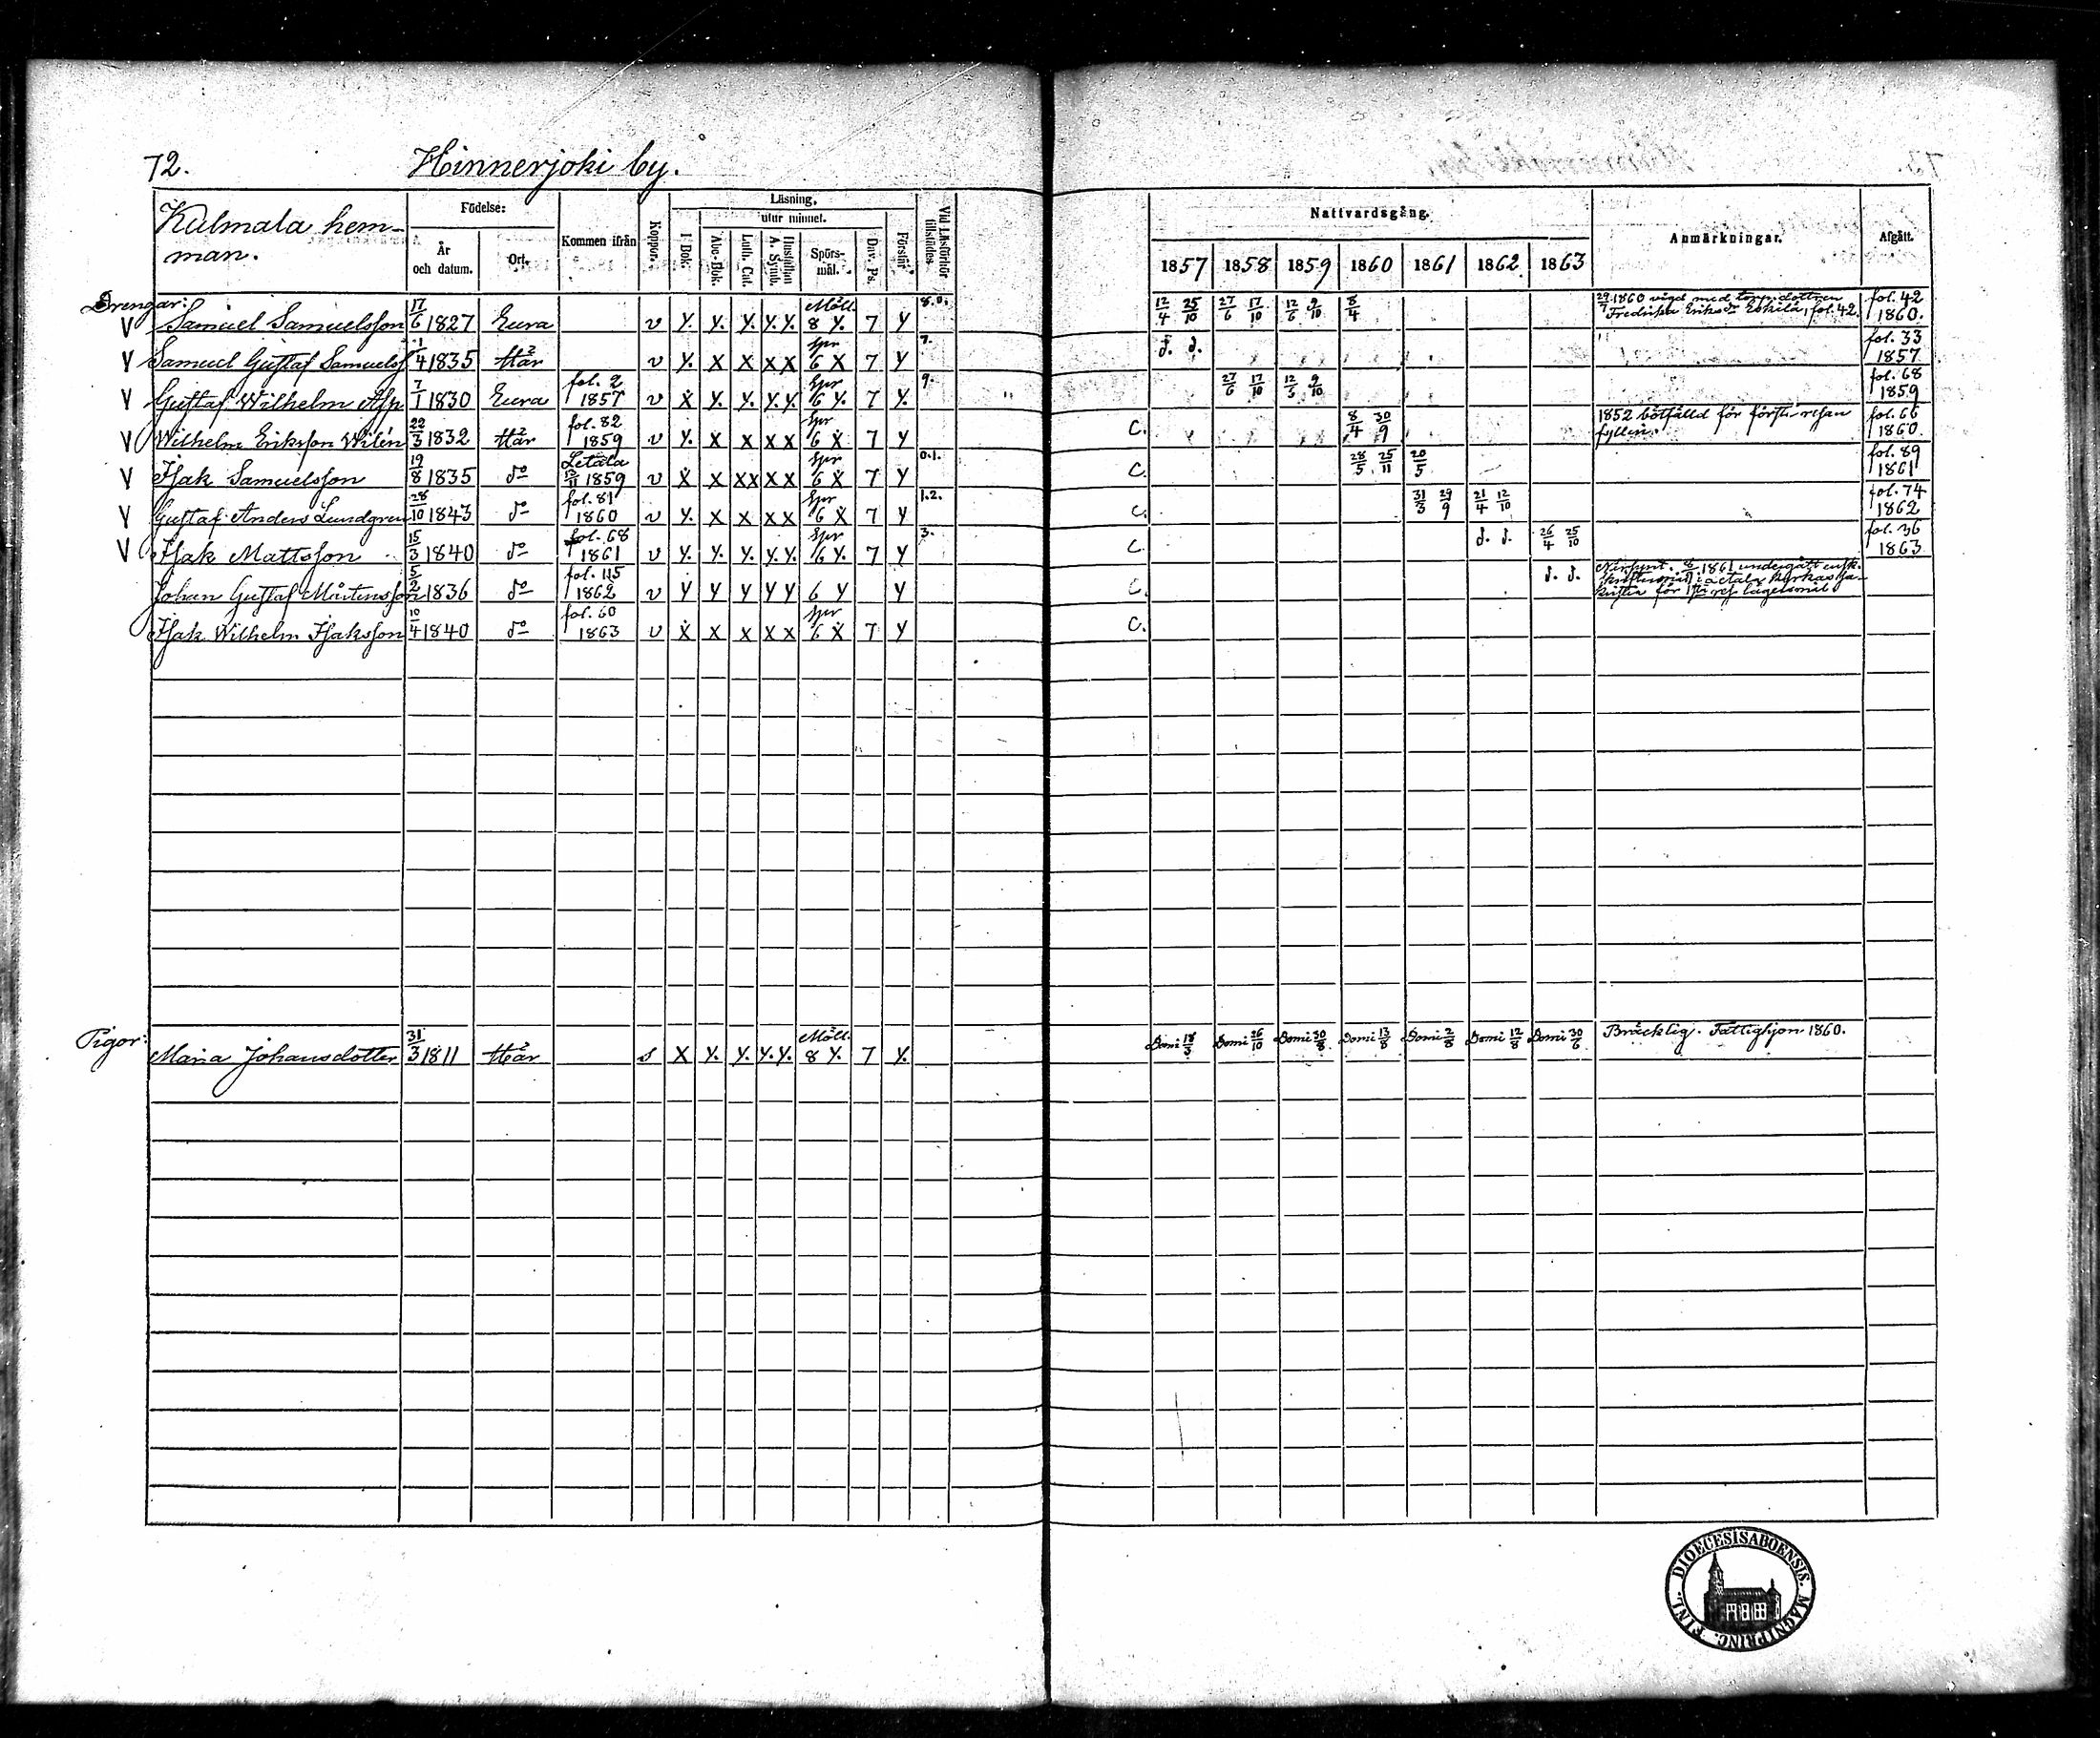 72.
Hinnerjoki by.
Kulmala hem-
man.
Födelse:
År
och datum.
Ort.
Kommen ifrån
Koppor.
Läsning.
utur minnet.
I Bok.
Abc-Bok.
Luth. Cat.
Hustaflan
A. Symb.
Spörs-
mål.
Dav. Ps.
Förstår
Vid Läsförhör
tillstädes.
Nattvardsgång.
1857 1858 1859 1860 1861 1862 1863
Anmärkningar.
Afgått.
Drengar:
V Samuel Samuelsson 17/6 1827 Eura v y. y. y. y. y. Möll. 8 y. 7 y 8.0. 12/4 25/10 27/6 17/10 12/6 9/10 8/4 29/7 1860 vigd med torp.dottren Fredrika Eriksdr Eskila, fol. 42. fol. 42 1860.
V Samuel Gustaf Samuelss 1/4 1835 Här v y. x x x x Spr 6 x 7 y 7. d. d. fol. 33 1857
V Gustaf Wilhelm Asp 7/1 1830 Eura fol. 2 1857 v x y. y. y. y. Spr 6 y. 7 y. 9. 27/6 17/10 12/6 9/10 fol. 68 1859
V Wilhelm Eriksson Wilén 22/3 1832 Här fol. 82 1859 v y. x x x x Spr 6 x 7 y C. 8/4 30/9 1852 bötfälld för första resan fylleri. fol. 66 1860
V Isak Samuelsson 19/8 1835 do Letala 12/11 1859 v x x xx x x Spr 6 x 7 y 0.1. C. 28/5 25/11 20/5 fol. 89 1861
V Gustaf Anders Lundgren 28/10 1843 do fol. 81 1860 v y. x x x x Spr 6 x 7 y 1.2. C. 31/3 29/9 21/4 12/10 fol. 74 1862
V Isak Mattsson 15/3 1840 do fol. 68 1861 v y. y. y. y. y. Spr 6 y. 7 y 3. C. d. d. 26/4 25/10 fol. 36 1863
Johan Gustaf Mårtensson 5/2 1836 do fol. 115 1862 v y y y y y 6 y y C. d. d. 1861 undergått ensk. skriftermål i Letala kyrkas sakristia för 1sta res. lägersmål
Isak Wilhelm Isaksson 10/4 1840 do fol. 60 1863 v x x x x x Spr 6 x 7 y C.
Pigor:
Maria Johansdotter 31/3 1811 Här s x y. y. y. y. Möll. 8 y. 7 y. Domi 18/3 Domi 26/10 Domi 30/8 Domi 13/8 Domi 2/8 Domi 12/8 Domi 30/6 Bräcklig. Fattighjon 1860.
DIOECESIS ABOENSIS. MAGNI PRINC. FINL.